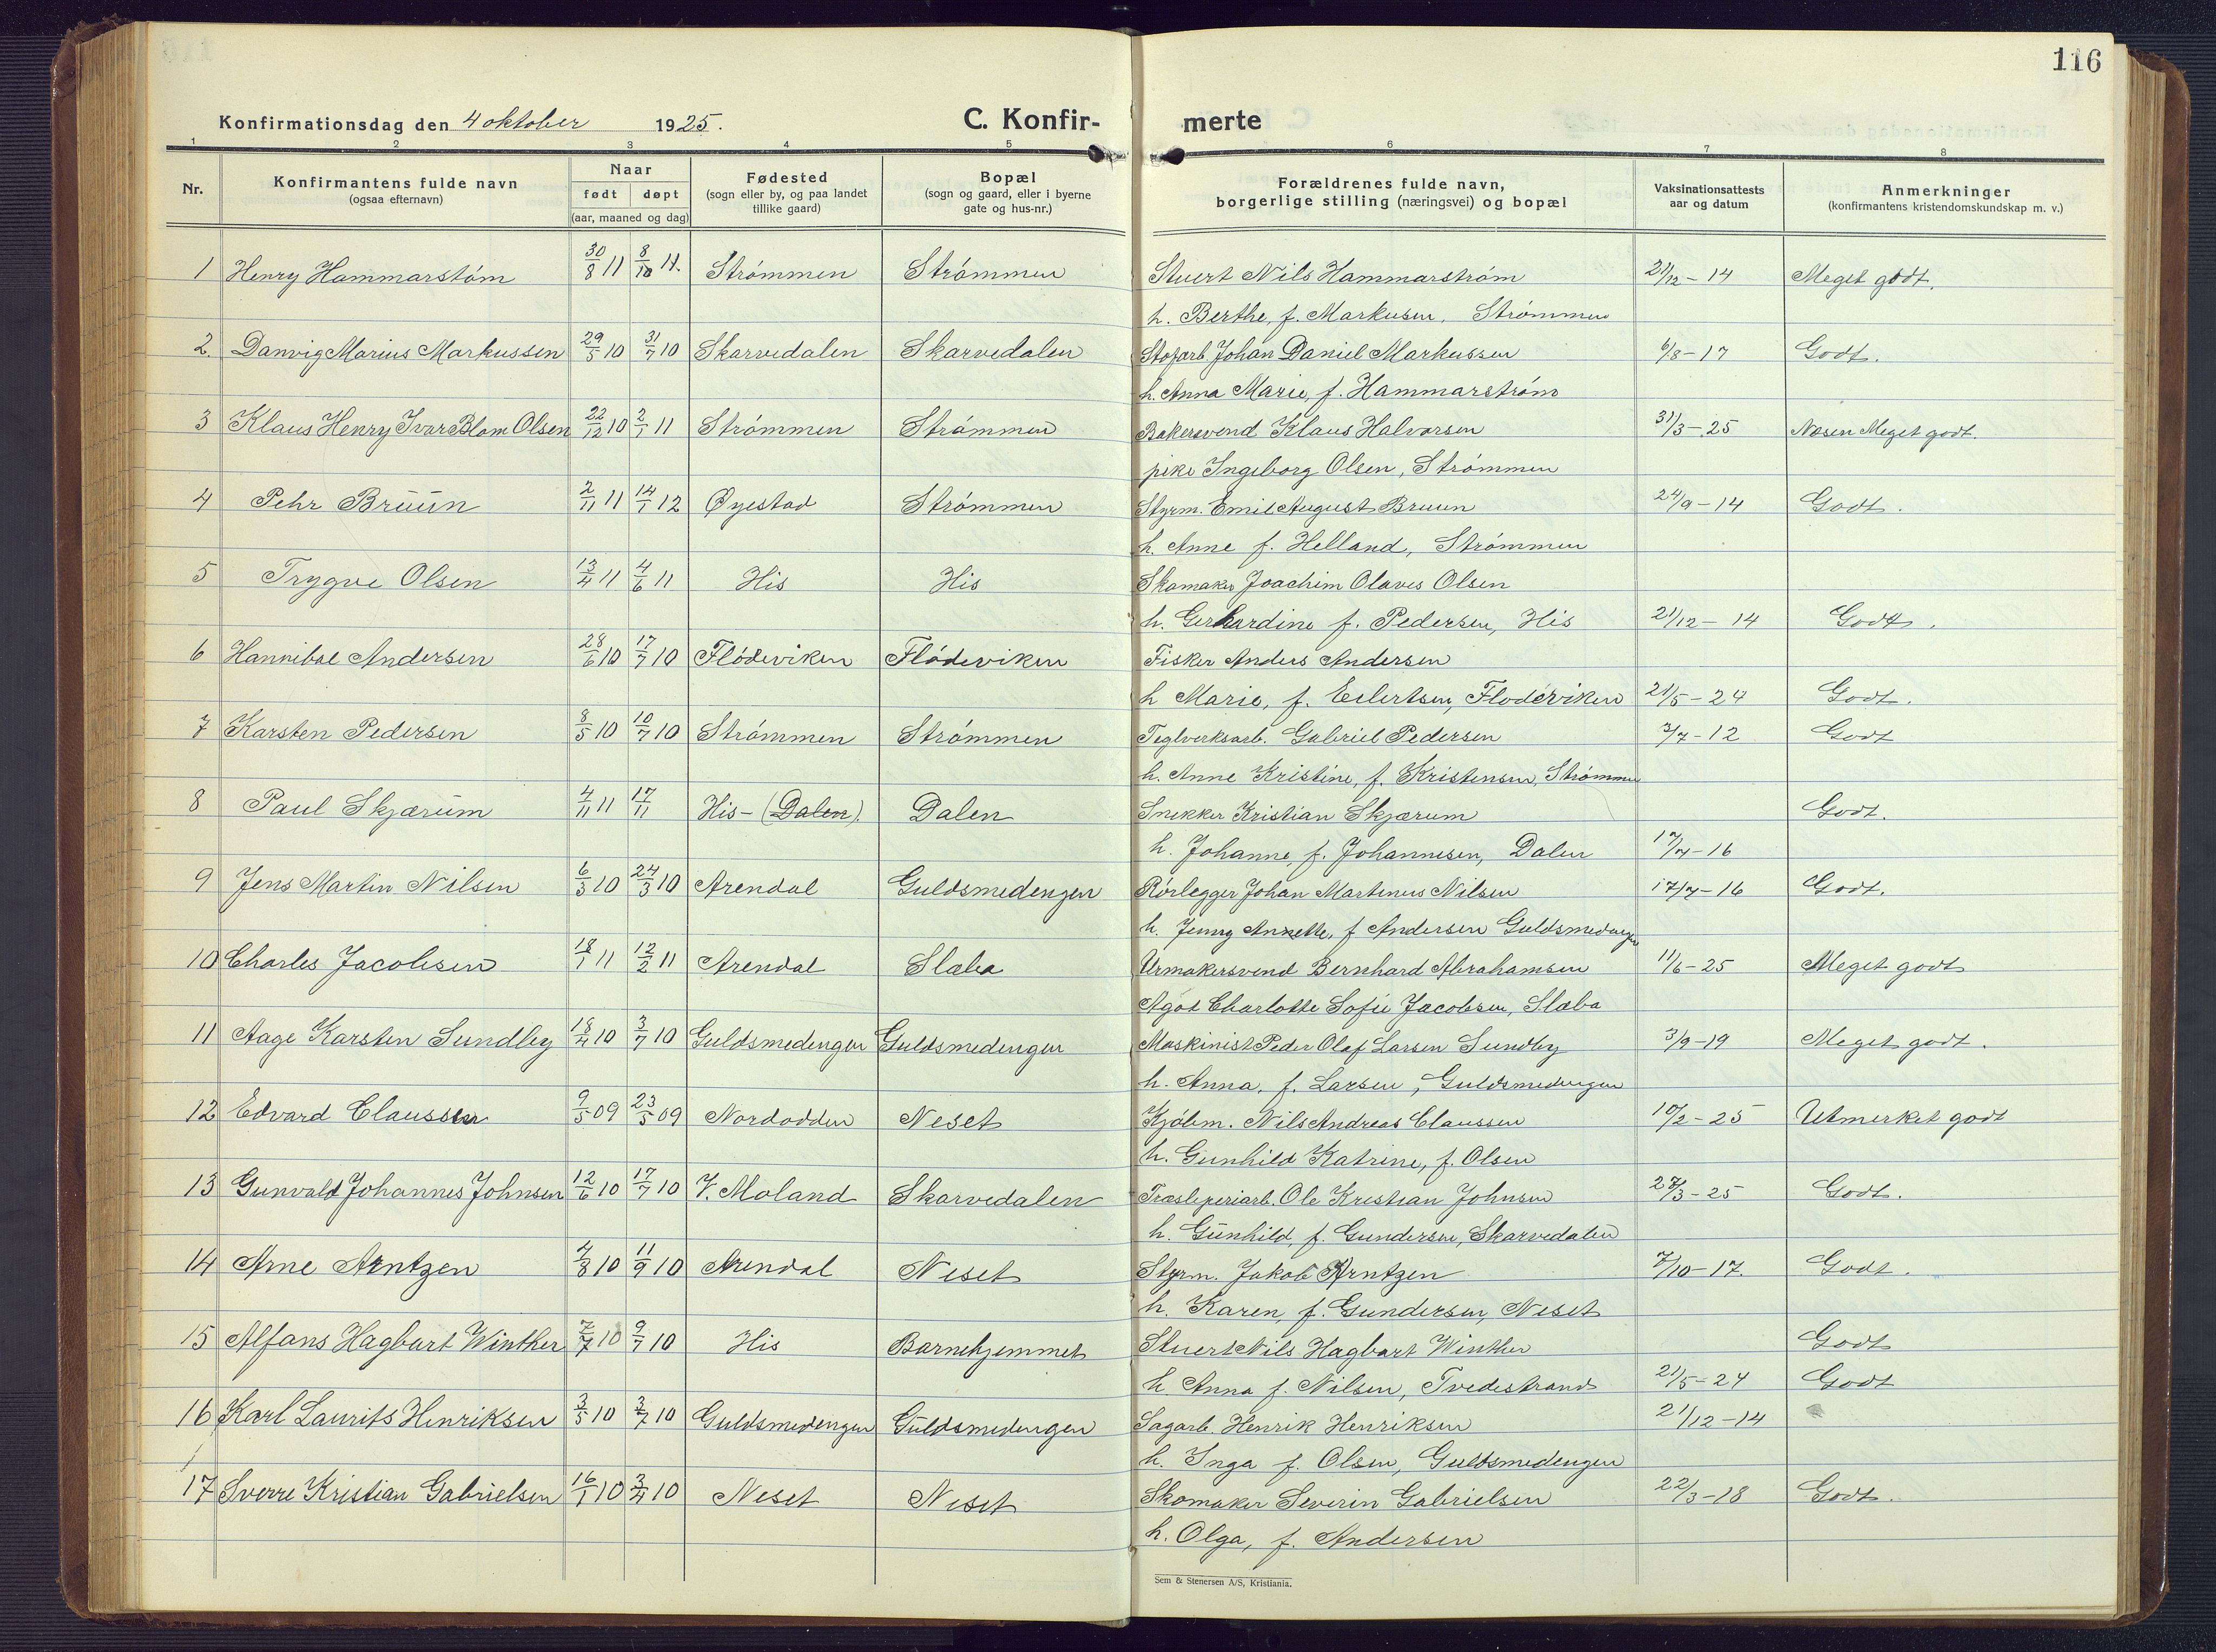 116
Konfirmationsdag den 4 oktober 1925. C. Konfir- merte
1 2 3 4 5 6 7 8
Nr. Konfirmantens fulde navn (ogsaa efternavn) Naar født døpt (aar, maaned og dag) Fødested (sogn eller by, og paa landet tillike gaard) Bopæl (sogn og gaard, eller i byerne gate og hus-nr.) Forældrenes fulde navn, borgerlige stilling (næringsvei) og bopæl Vaksinationsattests aar og datum Anmerkninger (konfirmantens kristendomskundskap m. v.)
1 Henry Hammarstöm 30/8 11 8/10 11. Strømmen Strømmen Stuert Nils Hammarström 21/12 - 14 Meget godt.
h. Berthe, f. Markusen, Strømmen
2. Danvig Marius Markussen 29/5 10 31/7 10 Skarvedalen Skarvedalen Stofarb. Johan Daniel Markussen 6/8 - 17 Godt.
h. Anna Marie, f. Hammarström
3 Klaus Henry Ivar Blom Olsen 22/12 10 2/1 11 Strømmen Strømmen Bakersvend Klaus Halvorsen 31/3 - 25 Næsen Meget godt.
pike Ingeborg Olsen, Strømmen
4 Pehr Bruun 2/11 11 14/1 12 Øyestad Strømmen Styrm. Emil August Bruun 24/9 - 14 Godt.
h. Anne f. Helland, Strømmen
5 Trygve Olsen 13/4 11 4/6 11 His His Skomaker Joachim Olaves Olsen
h. Gerhardine f. Pedersen, His 21/12 - 14 Godt.
6 Hannibal Andersen 28/6 10 17/7 10 Flödeviken Flödeviken Fisker Anders Andersen
h Marie, f. Eilertsen, Flodeviken 21/5 - 24 Godt.
7 Karsten Pedersen 8/5 10 10/7 10 Strømmen Strømmen Teglverksarb. Gabriel Pedersen 3/7 - 12 Godt
h. Anne Kristine, f. Kristensen, Strømmen
8 Paul Skjærum 4/11 11 17/11 His - (Dalen). Dalen Snekker Kristian Skjærum Godt.
h. Johanne, f. Johannesen, Dalen 17/7 - 16
9 Jens Martin Nilsen 6/3 10 24/3 10 Arendal Guldsmedengen Rörlegger Johan Martinus Nilsen 17/7 - 16 Godt.
h. Jenny Annette, f Andersen Guldsmedengen
10 Charles Jacobsen 18/1 11 12/2 11 Arendal Slæba Urmakersvend Bernhard Abrahamsen 11/6 - 25 Meget godt
Agot Charlotte Sofie Jacobsen, Slæba
11 Aage Karsten Sundby 18/4 10 3/7 10 Guldsmedengen Guldsmedengen Maskinist Peder Olaf Larsen Sundby 3/9 - 19 Meget godt.
h. Anna, f. Larsen, Guldsmedengen
12 Edvard Claussen 9/5 09 23/5 09 Nordodden Neset Kjöbm. Nils Andreas Claussen 10/2 - 25 Utmerket godt
h. Gunhild Katrine, f. Olsen
13 Gunvald Johannes Johnsen 12/6 10 17/7 10 V. Moland Skarvedalen Træsliperiarb. Ole Kristian Johnsen 27/3 - 25 Godt.
h. Gunhild, f. Gundersen, Skarvedalen
14 Arne Arntzen 4/8 10 11/9 10 Arendal Neset Styrm. Jakob Arntzen 7/10 - 17. Godt.
h. Karen, f. Gundersen, Neset
15 Alfons Hagbart Winther 7/7 10 9/7 10 His Barnehjemmet Stuert Nils Hagbart Winther Godt
h. Anna f. Nilsen, Tvedestrand 21/5 - 24 Godt
16 Karl Laurits Henriksen 3/5 10 3/7 10 Guldsmedengen Guldsmedengen Sagarb. Henrik Henriksen 21/12 - 14
h. Inga f. Olsen, Guldsmedengen
17 Sverre Kristian Gabrielsen 16/1 10 3/4 10 Neset Neset Skomaker Severin Gabrielsen 22/3 - 18 Godt.
h. Olga, f. Andersen
Sem & Stenersen A/S, Kristiania.